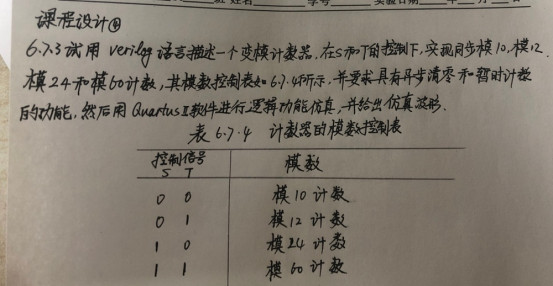 姓名 学号 实验日期 年 月 日
课程设计④
6.7.3 试用 verilog 语言描述一个变模计数器，在S和T的控制下，实现同步模10，模12，
模24和模60计数，其模数控制表如6.7.4所示，并要求具有异步清零和暂时计数
的功能，然后用 Quartus II 软件进行逻辑功能仿真，并给出仿真波形．
表 6.7.4 计数器的模数控制表
控制信号 模数
S T
0 0 模10计数
0 1 模12计数
1 0 模24计数
1 1 模60计数